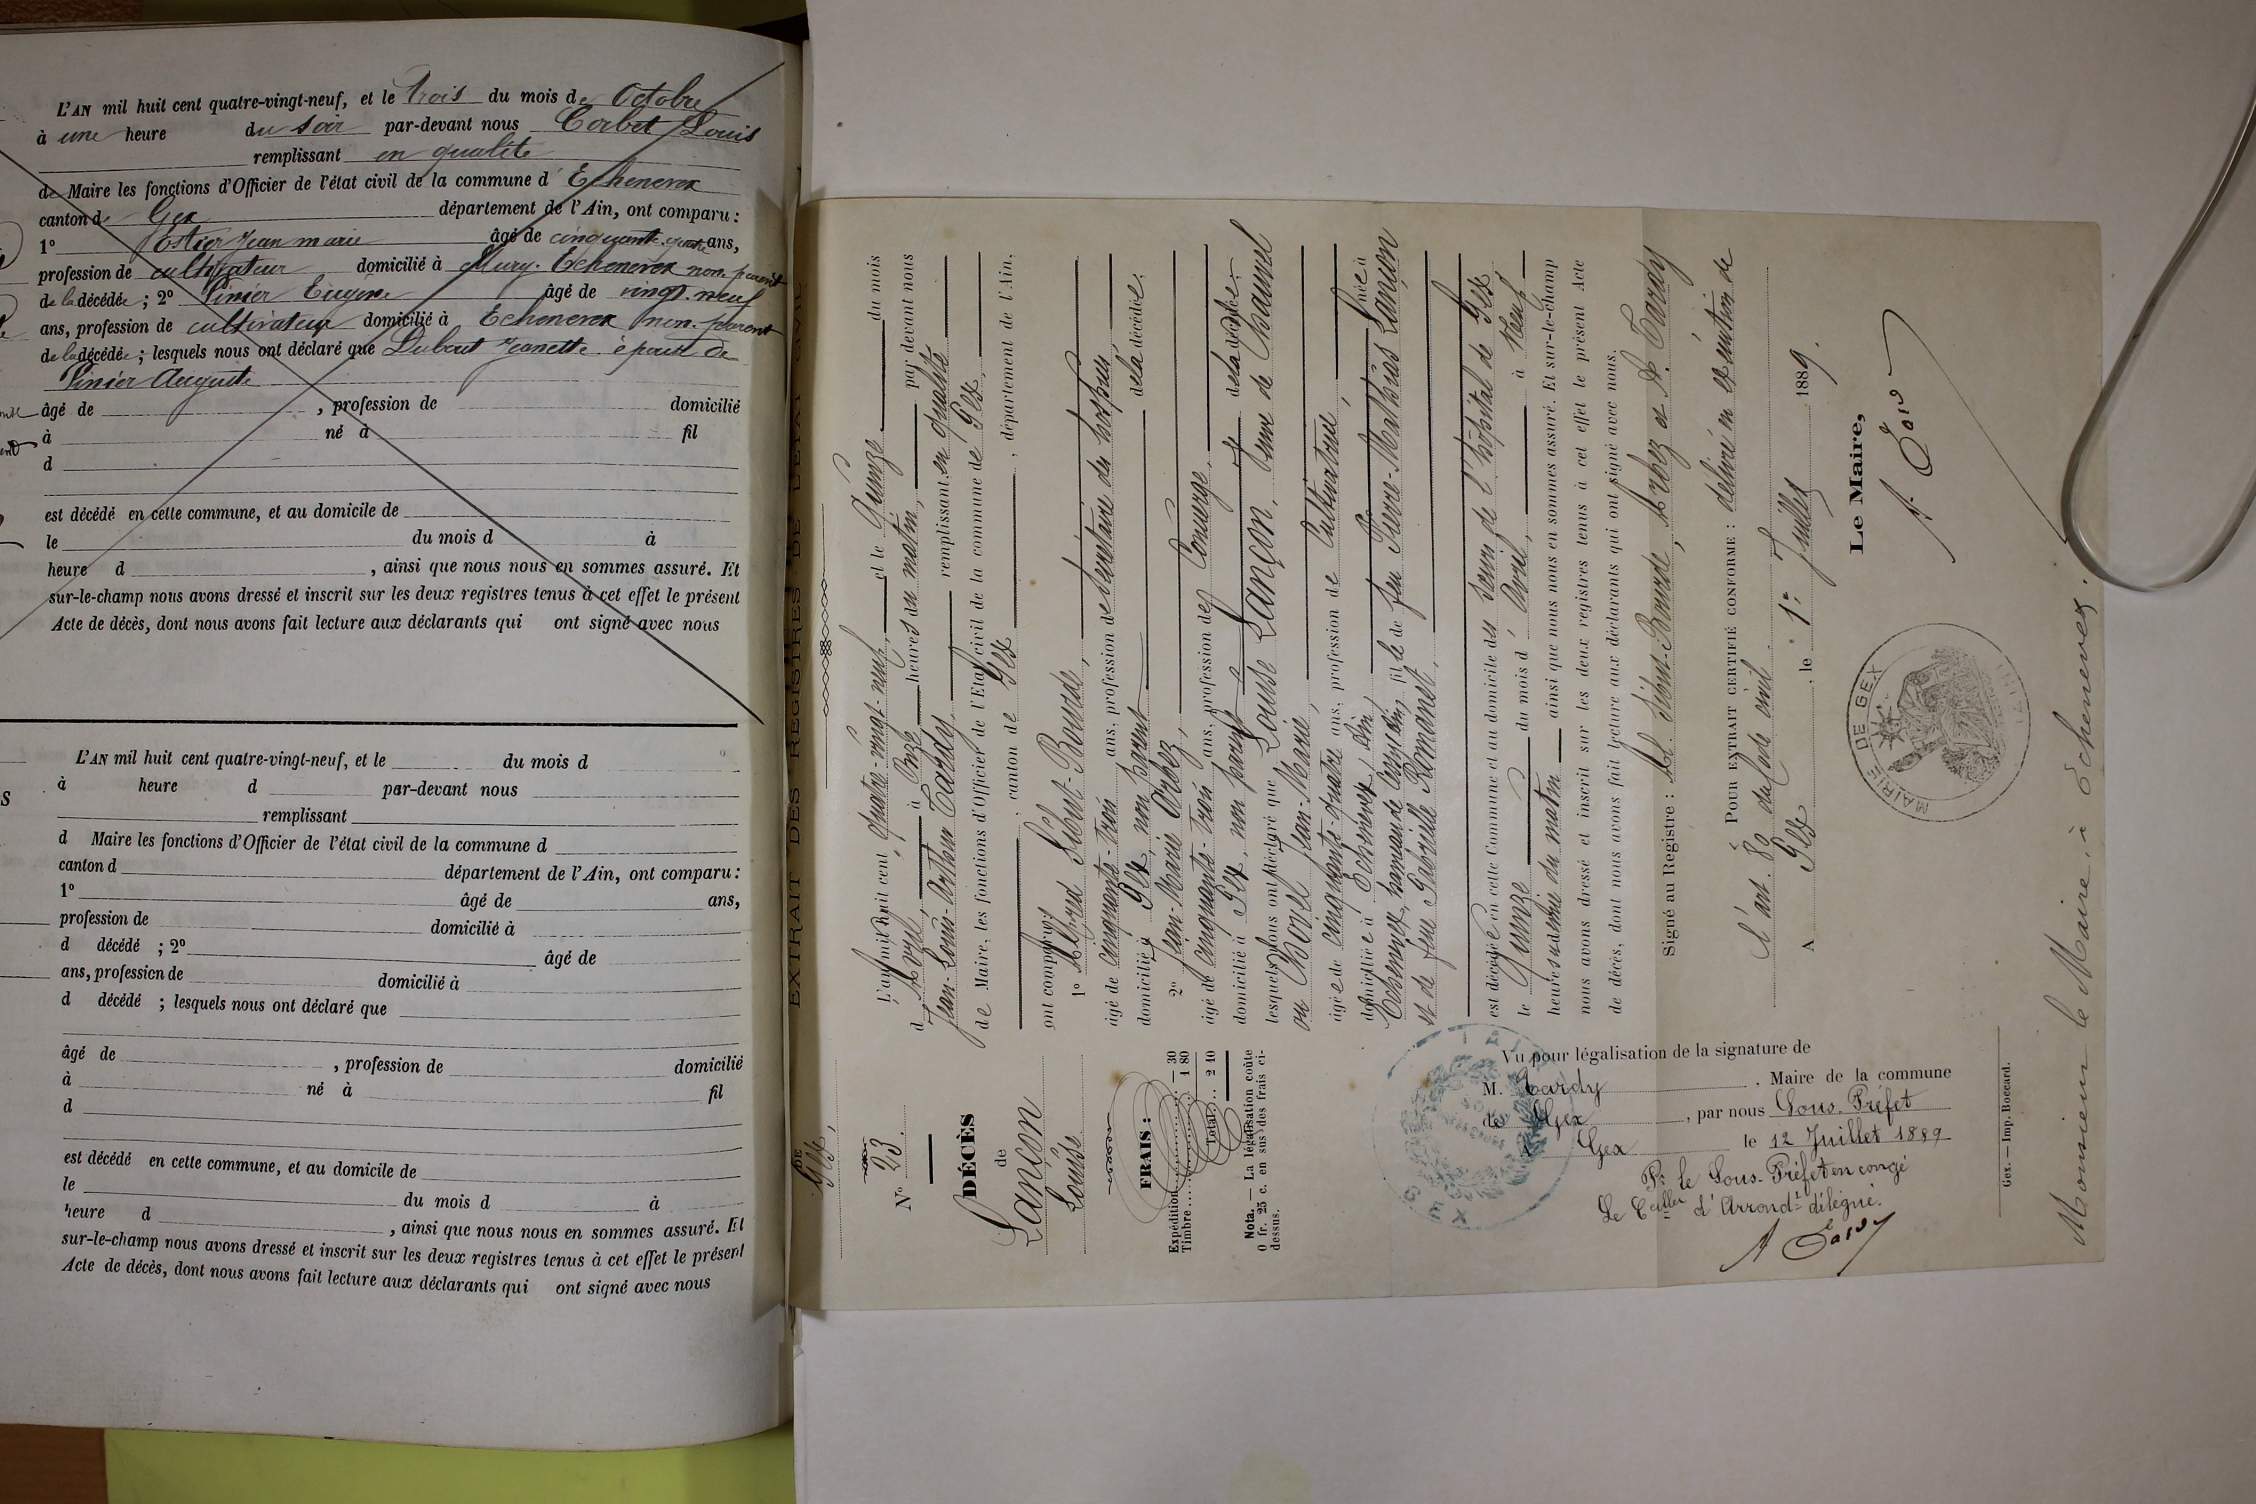 L'AN mil huit cent quatre-vingt-neuf, et le trois du mois de Octobre
à une heure du soir par-devant nous Corbet Louis
remplissant en qualité
de Maire les fonctions d'Officier de l'état civil de la commune d' Echenevex
canton de Gex département de l'Ain, ont comparu :
1° Estier Jean marie âgé de cinquante-quatre ans,
profession de cultivateur domicilié à Mury. Echenevex non parent
de la décédée ; 2° Pinier Eugène âgé de vingt-neuf
ans, profession de cultivateur domicilié à Echenevex non-parent
de la décédée ; lesquels nous ont déclaré que Dubout Jeanette épouse de
Pinier Auguste
âgé de , profession de domicilié
à né à fil
d
est décédé en cette commune, et au domicile de
le du mois d à
heure d , ainsi que nous nous en sommes assuré. Et
sur-le-champ nous avons dressé et inscrit sur les deux registres tenus à cet effet le présent
Acte de décès, dont nous avons fait lecture aux déclarants qui ont signé avec nous
L'AN mil huit cent quatre-vingt-neuf, et le du mois d
à heure d par-devant nous
remplissant
d Maire les fonctions d'Officier de l'état civil de la commune d
canton d département de l'Ain, ont comparu :
1° âgé de ans,
profession de domicilié à
d décédé ; 2° âgé de
ans, profession de domicilié à
d décédé ; lesquels nous ont déclaré que
âgé de , profession de domicilié
à né à fil
d
est décédé en cette commune, et au domicile de
le du mois d à
heure d , ainsi que nous nous en sommes assuré. Et
sur-le-champ nous avons dressé et inscrit sur les deux registres tenus à cet effet le présent
Acte de décès, dont nous avons fait lecture aux déclarants qui ont signé avec nous
EXTRAIT DES REGISTRES DE L'ÉTAT CIVIL
DE
Gex,
N° 23.
DÉCÈS
de
Lançon
Louise
FRAIS :
Expédition — 30
Timbre 1 80
Total 2 10
Nota. — La légalisation coûte
0 fr. 25 c. en sus des frais ci-
dessus.
L'an mil huit cent quatre-vingt-neuf, et le Quinze du mois
d'Avril, à Onze heures du matin, par devant nous
Jean-Louis-Arthur Tardy, remplissant en qualité
de Maire, les fonctions d'Officier de l'Etat civil de la commune de Gex,
canton de Gex, département de l'Ain,
ont comparu :
1° Alfred Sibut-Bourde,
âgé de cinquante-trois ans, profession de Secrétaire de hospice,
domicilié à Gex, non parent de la décédée.
2° Jean-Marie Arbez,
âgé de cinquante-trois ans, profession de Concierge,
domicilié à Gex, non parent de la décédée.
lesquels nous ont déclaré que Louise Lançon, Veuve de Chauvel
ou Chovel Jean-Marie,
âgée de cinquante-quatre ans, profession de Cultivatrice,
domiciliée à Echenevex, Ain, née à
Echenevex, fille de feu Pierre-Mathias Lançon
et de feue Gabrielle Romanet,
est décédée en cette Commune et au domicile des soins de l'hôpital de Gex,
le Quinze du mois d'Avril, à Neuf
heures du matin ainsi que nous nous en sommes assuré. Et sur-le-champ
nous avons dressé et inscrit sur les deux registres tenus à cet effet le présent Acte
de décès, dont nous avons fait lecture aux déclarants qui ont signé avec nous.
Signé au Registre : Al. Sibut-Bourde, Arbez et A. Tardy
POUR EXTRAIT CERTIFIÉ CONFORME : délivré en exécution de
l'art. 80 du Code civil
A Gex, le 1er Juillet 1889.
Le Maire,
MAIRIE DE GEX
(AIN)
Vu pour légalisation de la signature de
M. Tardy, Maire de la commune
de Gex, par nous Sous-Préfet
Gex le 12 Juillet 1889
Pr le Sous-Préfet en congé
Le Cseiller d'Arrondt délégué.
Gex. — Imp. Boccard.
Monsieur le Maire, à Echenevex.